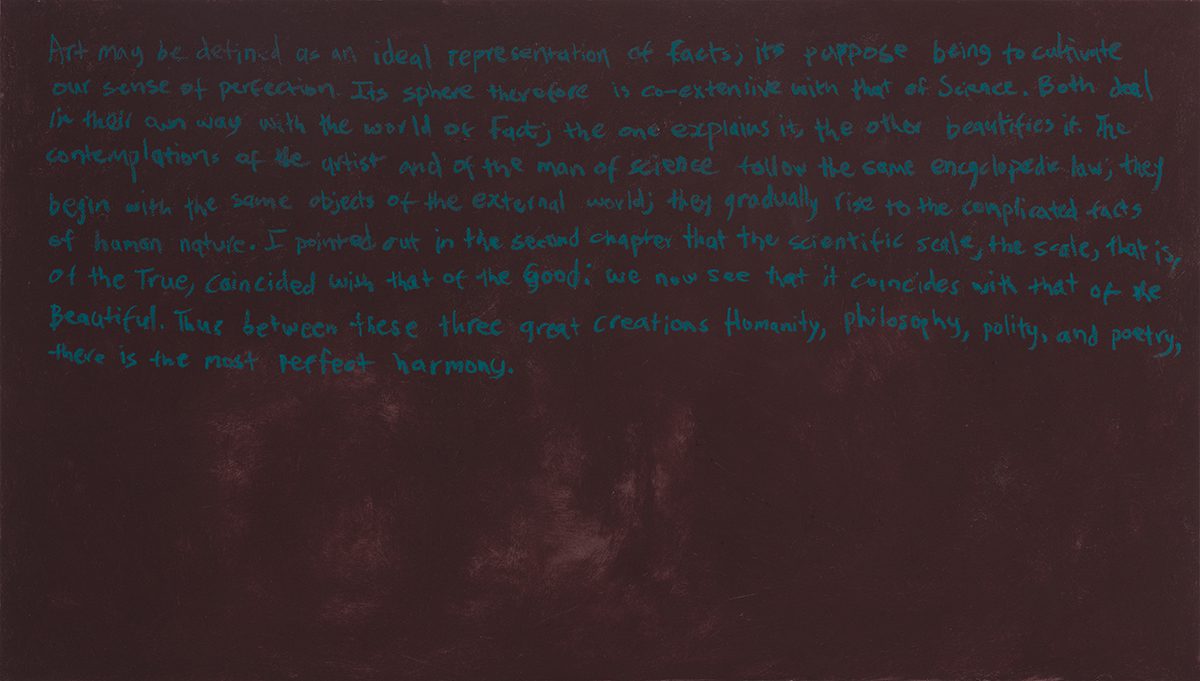 Art may be defined as an ideal representation of facts; its purpose being to cultivate
our sense of perfection. Its sphere therefore is co-extensive with that of Science. Both deal
in their own way with the world of Fact; the one explains it, the other beautifies it. The
contemplations of the artist and of the man of science follow the same encyclopedic law; they
begin with the same objects of the external world; they gradually rise to the complicated facts
of human nature. I pointed out in the second chapter that the scientific scale, the scale, that is,
of the True, coincided with that of the Good: we now see that it coincides with that of the
Beautiful. Thus between these three great creations Humanity, philosophy, polity, and poetry,
there is the most perfect harmony.